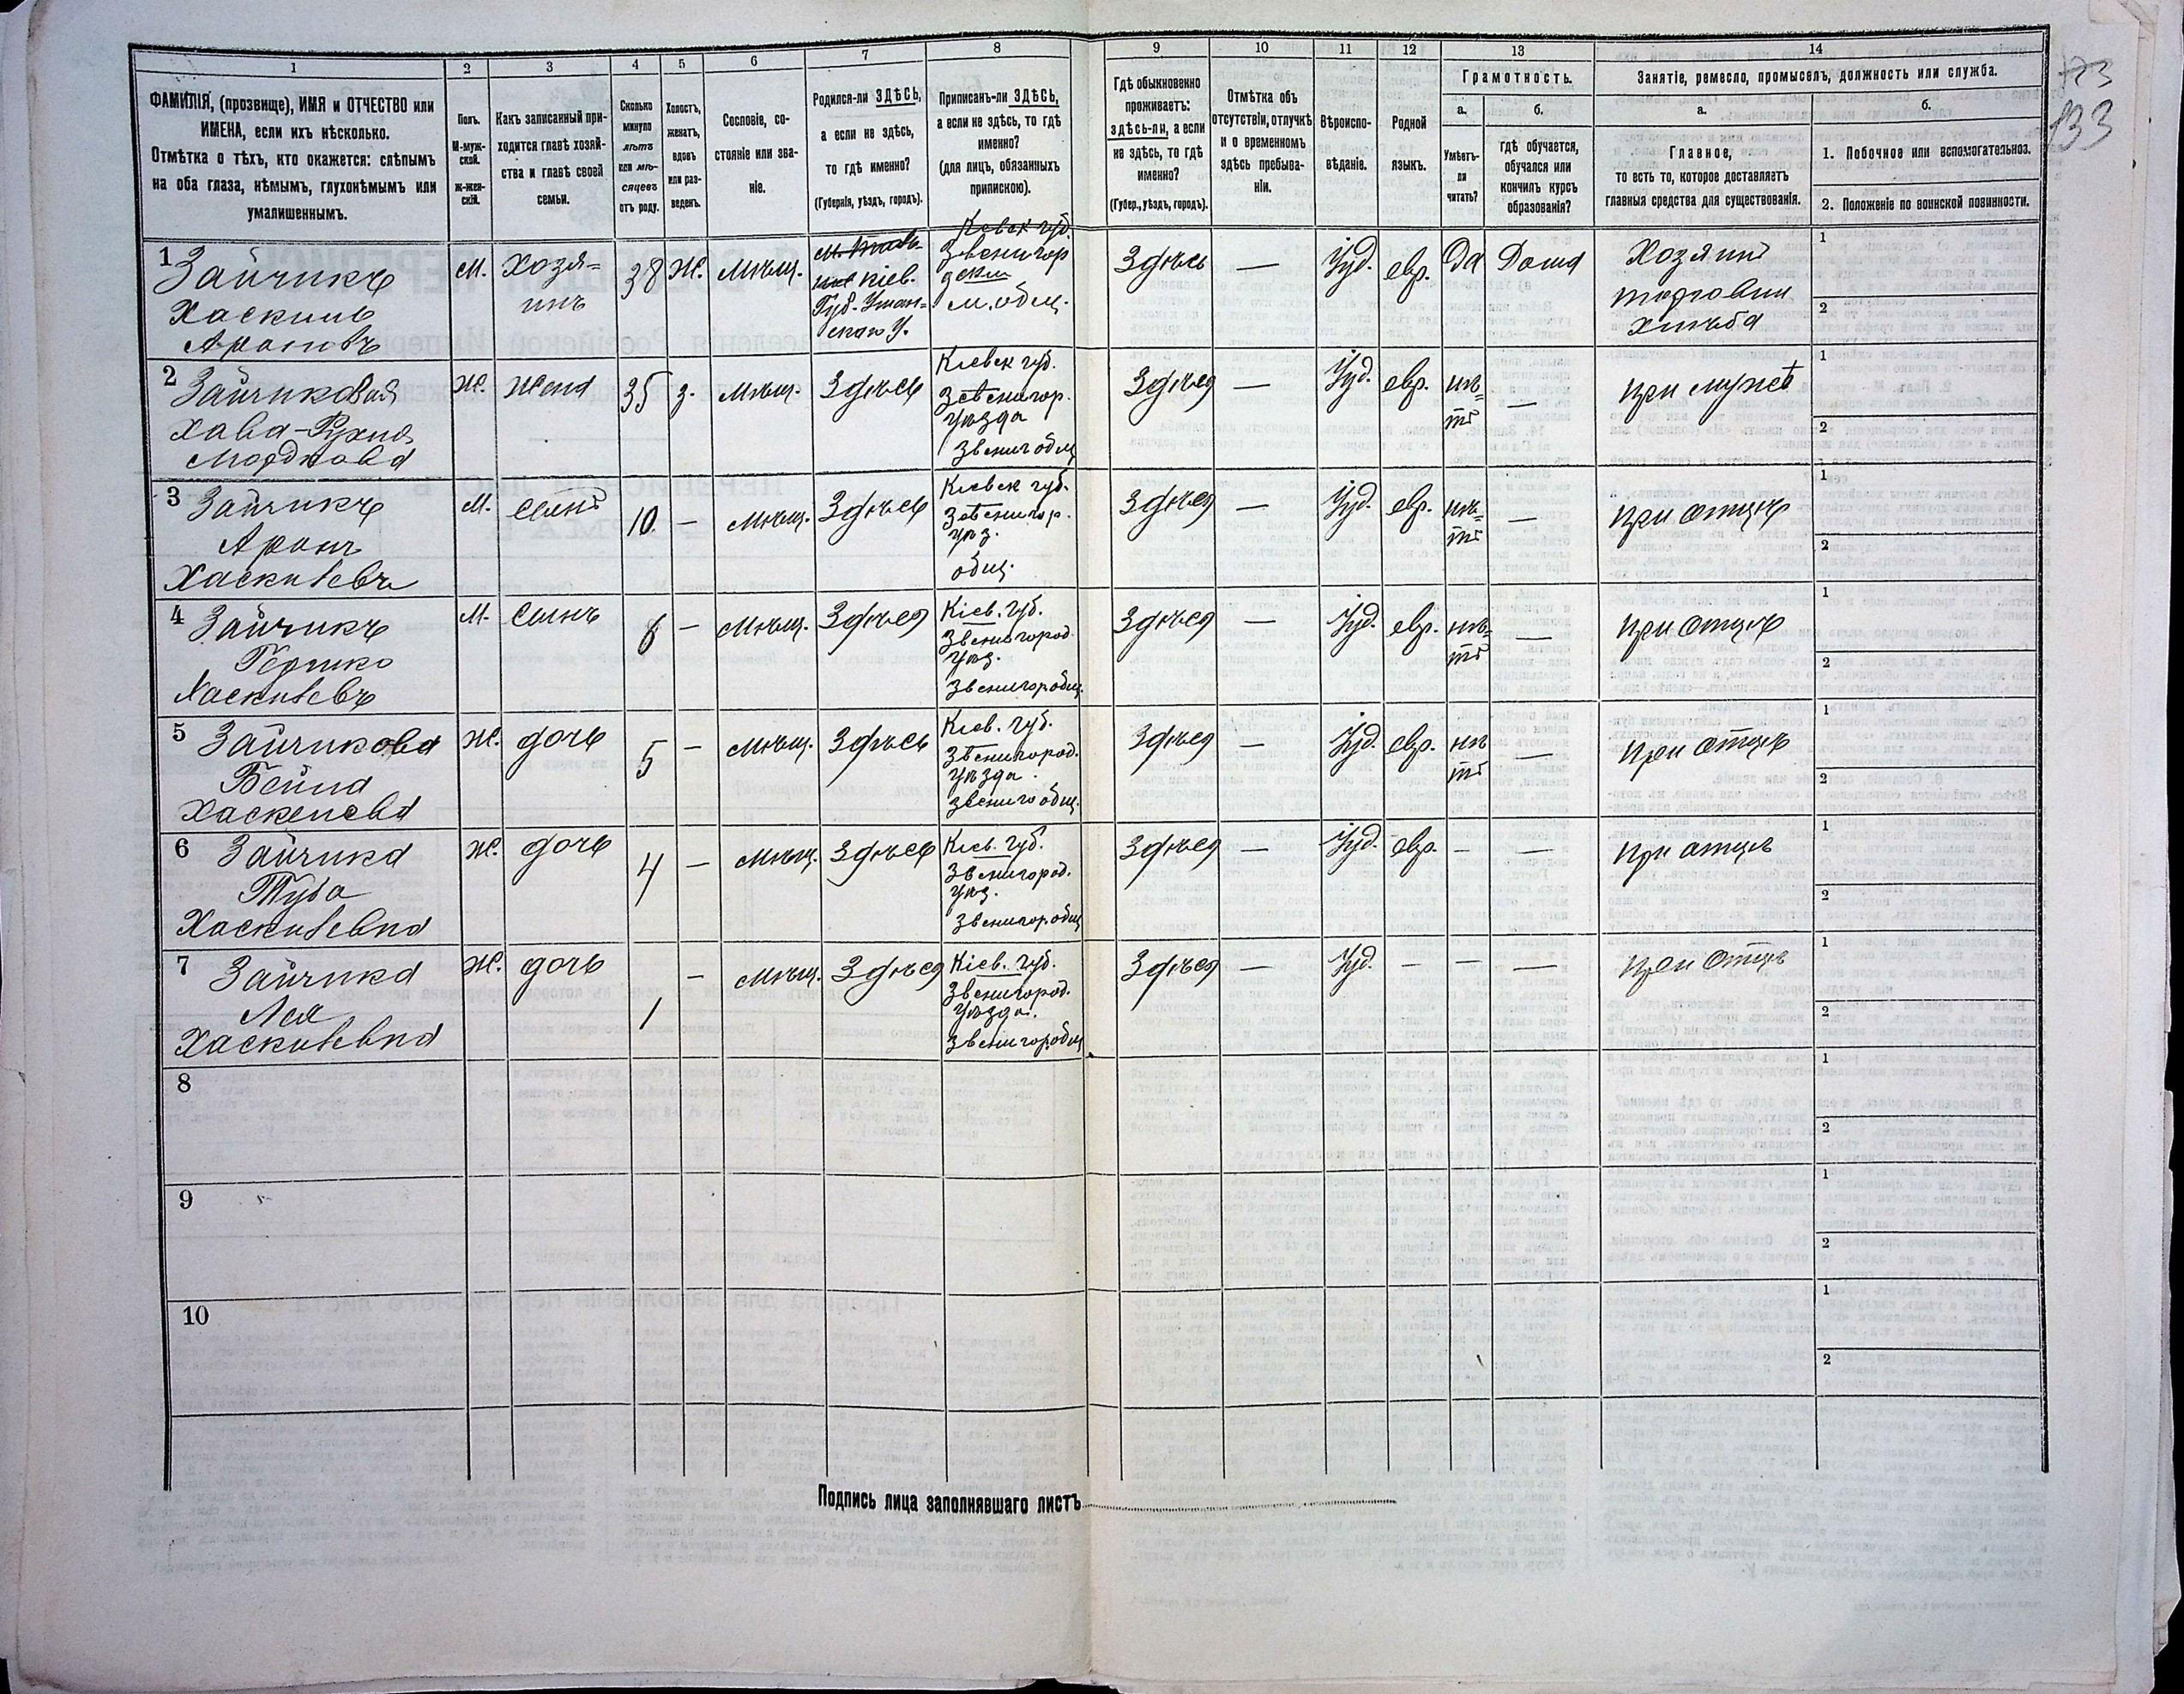 1 2 3 4 5 6 7 8 9 10 11 12 13 14
ФАМИЛІЯ, (прозвище), ИМЯ и ОТЧЕСТВО или
ИМЕНА, если ихъ нѣсколько.
Отмѣтка о тѣхъ, кто окажется: слѣпымъ
на оба глаза, нѣмымъ, глухонѣмымъ или
умалишеннымъ.
Полъ.
М-муж-
ской.
ж-жен-
скій.
Какъ записанный при-
ходится главѣ хозяй-
ства и главѣ своей
семьи.
Сколько
минуло
лѣтъ
или мѣ-
сяцевъ
отъ роду.
Холостъ,
женатъ,
вдовъ
или раз-
веденъ.
Сословіе, со-
стояніе или зва-
ніе.
Родился-ли ЗДѢСЬ,
а если не здѣсь,
то гдѣ именно?
(Губернія, уѣздъ, городъ).
Приписанъ-ли ЗДѢСЬ,
а если не здѣсь, то гдѣ
именно?
(для лицъ, обязанныхъ
припискою).
Гдѣ обыкновенно
проживаетъ:
здѣсь-ли, а если
не здѣсь, то гдѣ
именно?
(Губер., уѣздъ, городъ).
Отмѣтка объ
отсутствіи, отлучкѣ
и о временномъ
здѣсь пребыва-
ніи.
Вѣроиспо-
вѣданіе.
Родной
языкъ.
Грамотность.
а.
Умѣетъ-
ли
читать?
б.
гдѣ обучается,
обучался или
кончилъ курсъ
образованія?
Занятіе, ремесло, промыселъ, должность или служба.
а.
Главное,
то есть то, которое доставляетъ
главныя средства для существованія.
б.
1. Побочное или вспомогательное.
2. Положеніе по воинской повинности.
133
1
Зайчикъ
Хаскиль
Ароновъ
м.
хозя=
инъ
38
ж.
мѣщ.
Кіев.
Губ. Уман=
скаго у.
Кіевск губ.
Звенигор
м. общ.
Здѣсь
—
Іуд.
евр.
да
Дома
Хозяинъ
торговли
хлѣба
1
2
2
Зайчиковая
Хава-Рухля
Мордкова
ж.
жена
35
з.
мѣщ.
Здѣсь
Кіевск губ.
Звенигор.
уѣзда
Звениг общ
Здѣся
—
Іуд.
евр.
нѣ=
тъ
—
при мужѣ
1
2
3
Зайчикъ
Аронъ
Хаскилевъ
м.
сынъ
10
—
мѣщ.
Здѣсь
Кіевск губ.
Звенигор.
уѣз.
общ.
Здѣся
—
Іуд.
евр.
нѣ=
тъ
—
при отцѣ
1
2
4
Зайчикъ
Гершко
Хаскилевъ
м.
сынъ
8
—
мѣщ.
Здѣся
Кіев. губ.
Звенигород.
уѣз.
Звенигор общ.
Здѣся
—
Іуд.
евр.
нѣ=
тъ
—
при отцѣ
1
2
5
Зайчикова
Бейла
Хаскелева
ж.
дочь
5
—
мѣщ.
Здѣсь
Кіев. губ.
Звенигород.
уѣзда
звениго общ.
Здѣся
—
Іуд.
евр.
нѣ
тъ
—
при отцѣ
1
2
6
Зайчика
Туба
Хаскилевна
ж.
дочь
4
—
мѣщ.
Здѣсь
Кіев. губ.
Звенигород.
уѣз.
Звенигор. общ
Здѣся
—
Іуд.
евр.
—
—
при отцѣ
1
2
7
Зайчика
Лея
Хаскилевна
ж.
дочь
1
—
мѣщ.
Здѣся
Кіев. губ.
Звенигород.
уѣзда.
Звенигор. общ
Здѣся
—
Іуд.
—
—
—
при отцѣ
1
2
8
1
2
9
1
2
10
1
2
Подпись лица заполнявшаго листъ